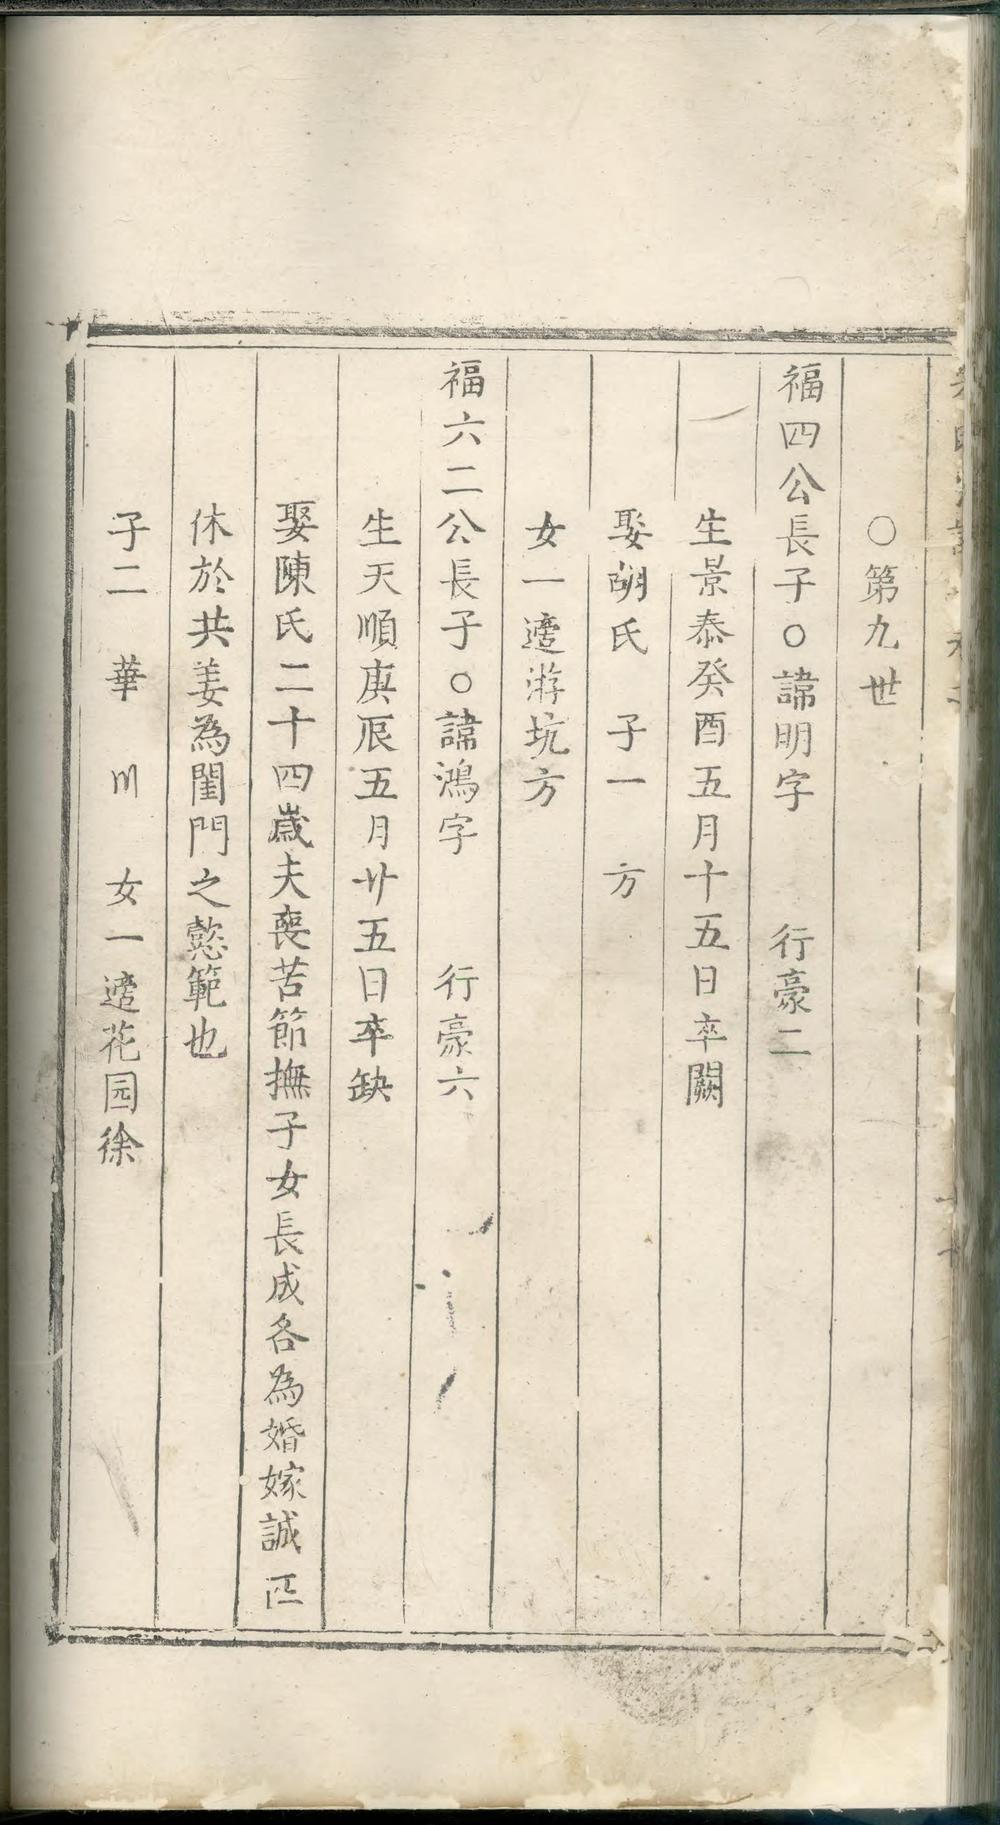 ○第九世
福四公長子○諱明字　行豪二
生景泰癸酉五月十五日卒闕
娶胡氏　子一　方
女一適游坑方
福六二公長子○諱鴻字　行豪六
生天順庚辰五月廿五日卒缺
娶陳氏二十四歲夫喪苦節撫子女長成各為婚嫁誠匹
休於共姜為閨門之懿範也
子二　華　川　女一適花园徐